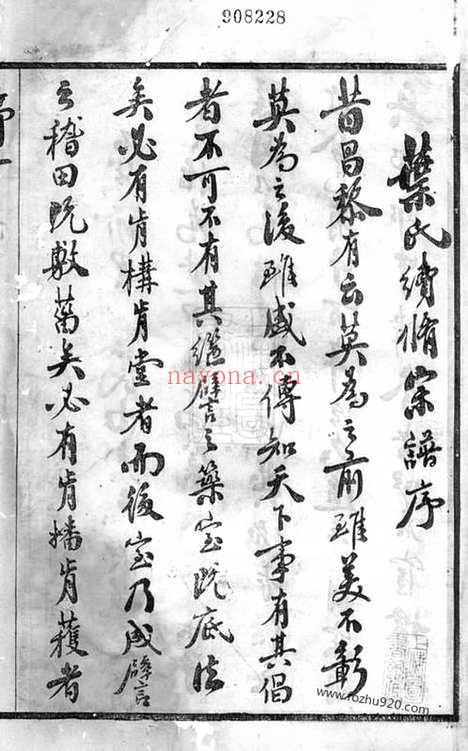 908228
葉氏續脩宗譜序
昔昌黎有云莫為之前雖美不彰
莫為之後雖盛不傳知天下事有其倡
者不可不有其繼譬之築室既底法
矣必有肯構肯堂者而後室乃成譬
之稽田既敷菑矣必有肯播肯穫者
nayona.cn
www.fozhu920.com